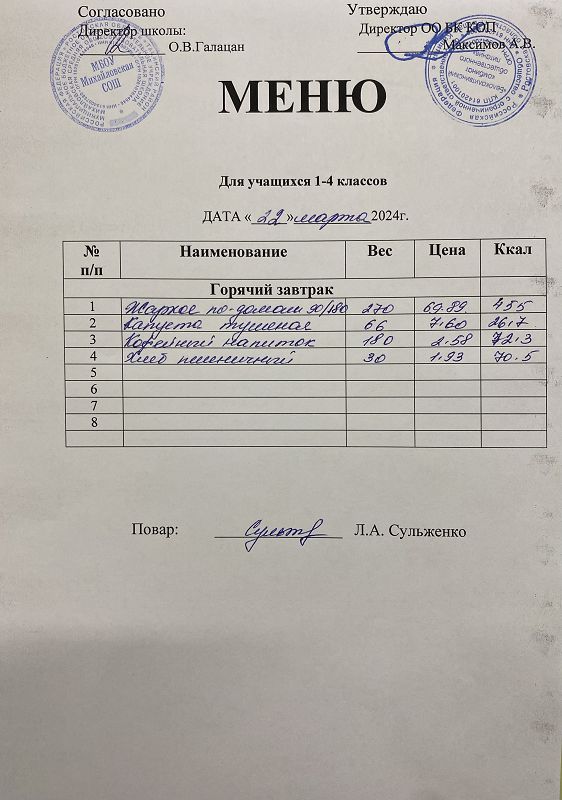 Согласовано Утверждаю
Директор школы: Директор ОО БК КОП
О.В.Галацан Максимов А.В.
МБОУ
Михайловская
СОШ
МЕНЮ
Для учащихся 1-4 классов
ДАТА « 22 » марта 2024г.
№ п/п Наименование Вес Цена Ккал
Горячий завтрак
1 Жаркое по-домаш 90/180 270 69.89 455
2 Капуста тушеная 66 7.60 26.7
3 Кофейный напиток 180 2.58 72.3
4 Хлеб пшеничный 30 1.93 70.5
5
6
7
8
Повар: Л.А. Сульженко